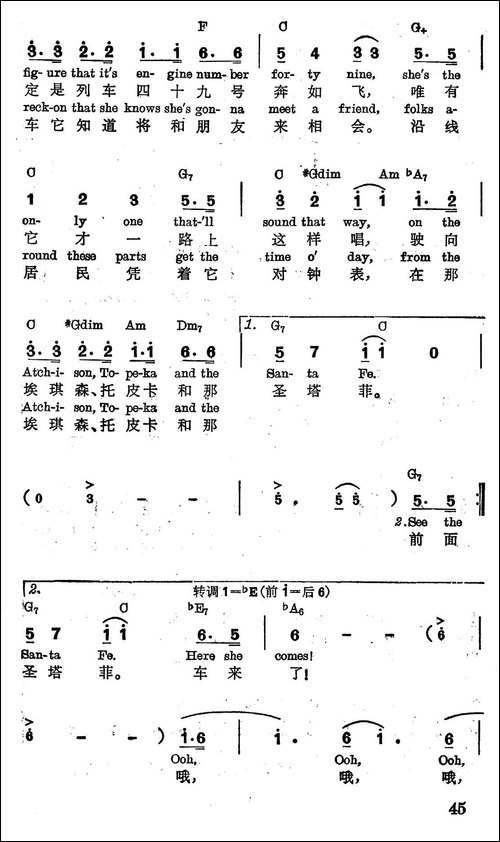 F C G+
3·3 2·2 1·1 6·6 | 5 4 3 3 5·5
fig-ure that it's en-gine num-ber for-ty nine, she's the
定是列车四十九号 奔如飞, 唯有
reck-on that she knows she's gon-na meet a friend, folks a-
车它知道将和朋友 来相会。 沿线
C G7 C #Gdim Am bA7
1 2 3 5·5 | 3 2 1 1 1·2
on-ly one that-'ll sound that way, on the
它才一路上 这样唱, 驶向
round these parts get the time o' day, from the
居民凭着它 对钟表, 在那
C #Gdim Am Dm7 1. G7 C
3·3 2·2 1·1 6·6 | 5 7 1 1 0
Atch-i-son, To-pe-ka and the San-ta Fe.
埃琪森、托皮卡和那 圣塔菲。
Atch-i-son, To-pe-ka and the
埃琪森、托皮卡和那
G7
(0 3 - - | 5. 5 5 ) 5·5 :‖
2.See the
前面
2. 转调1=bE(前i=后6)
G7 C bE7 bA6
5 7 1 1 6·5 | 6 - - (6
San-ta Fe. Here she comes!
圣塔菲。 车来了!
6 - - ) 1·6 | 1. 6 1. 6
Ooh, Ooh, Ooh,
哦, 哦, 哦,
45